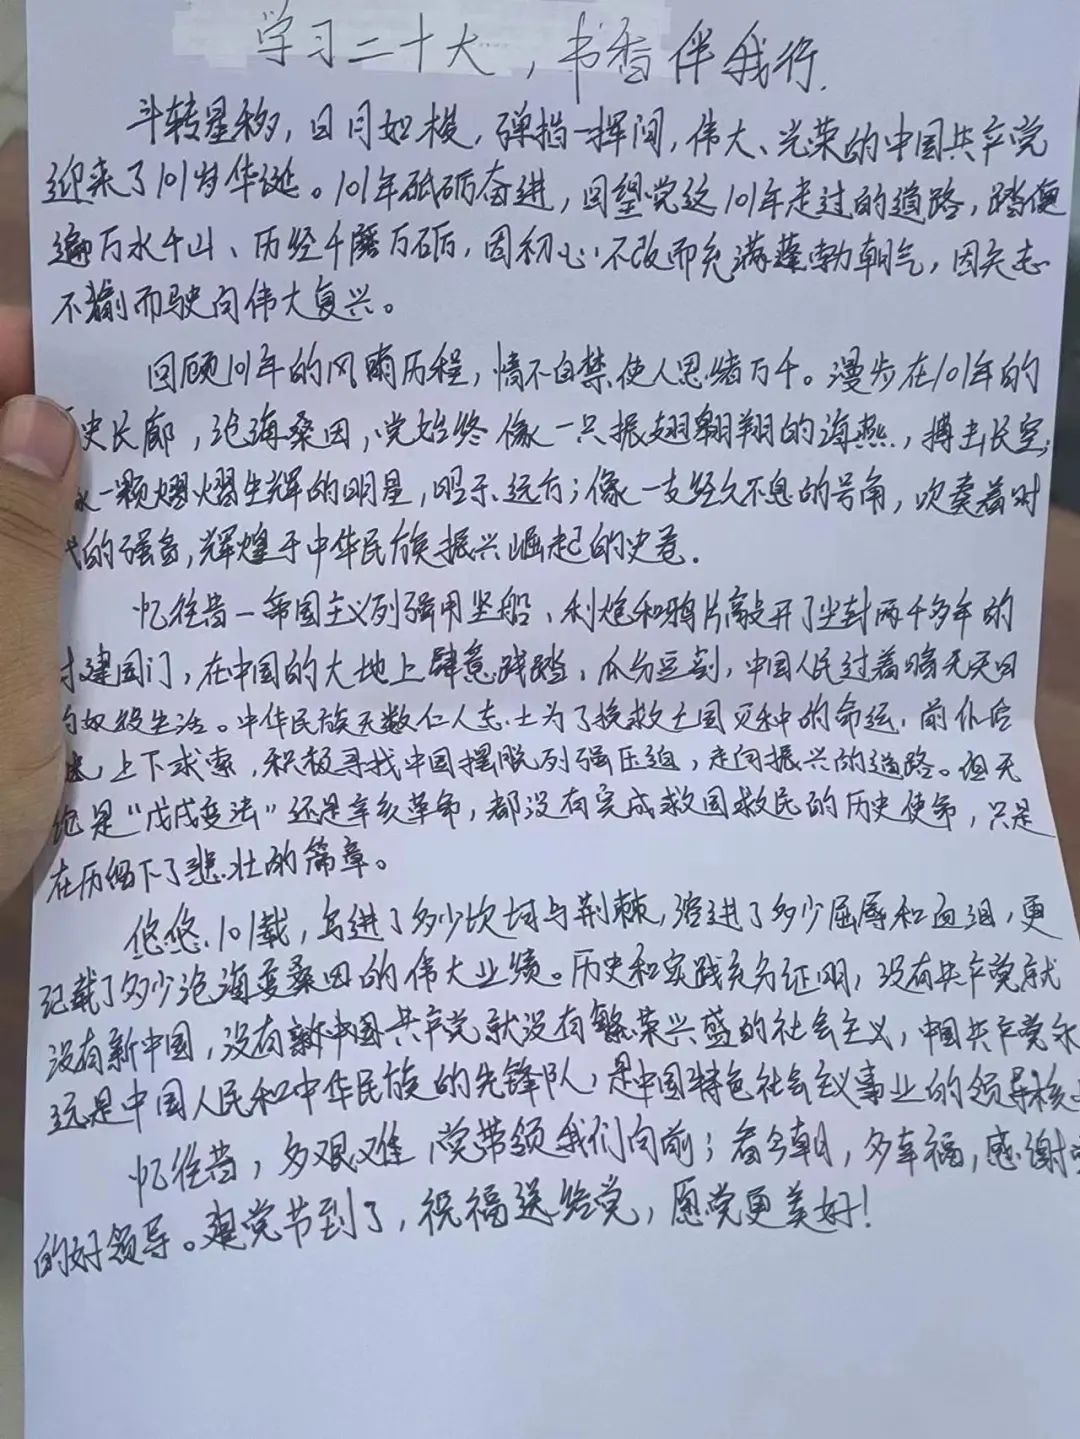 学习二十大，书香伴我行.
斗转星移，日月如梭，弹指一挥间，伟大、光荣的中国共产党
迎来了101岁华诞。101年砥砺奋进，回望党这101年走过的道路，踏便
遍万水千山、历经千磨万砺，因初心不改而充满蓬勃朝气，因矢志
不渝而驶向伟大复兴。
回顾101年的风雨历程，情不自禁使人思绪万千。漫步在101年的
史长廊，沧海桑田，党始终像一只振翅翱翔的海燕，搏击长空；
一颗熠熠生辉的明星，昭示远方；像一支经久不息的号角，吹奏着时
的强音，辉煌于中华民族振兴崛起的史卷.
忆往昔－帝国主义列强用坚船、利炮和鸦片敲开了尘封两千多年的
建国门，在中国的大地上肆意践踏，瓜分豆剖，中国人民过着暗无天日
奴役生活。中华民族无数仁人志士为了挽救亡国灭种的命运，前仆后
，上下求索，积极寻找中国摆脱列强压迫，走向振兴的道路。但无
论是“戊戌变法”还是辛亥革命，都没有完成救国救民的历史使命，只是
在历留下了悲壮的篇章。
悠悠101载，写进了多少坎坷与荆棘，溶进了多少屈辱和血泪，更
记载了多少沧海变桑田的伟大业绩。历史和实践充分证明，没有共产党就
没有新中国，没有新中国共产党就没有繁荣兴盛的社会主义，中国共产党永
远是中国人民和中华民族的先锋队，是中国特色社会主义事业的领导核
忆往昔，多艰难，党带领我们向前；看今朝，多幸福，感谢
的好领导。建党节到了，祝福送给党，愿党更美好！